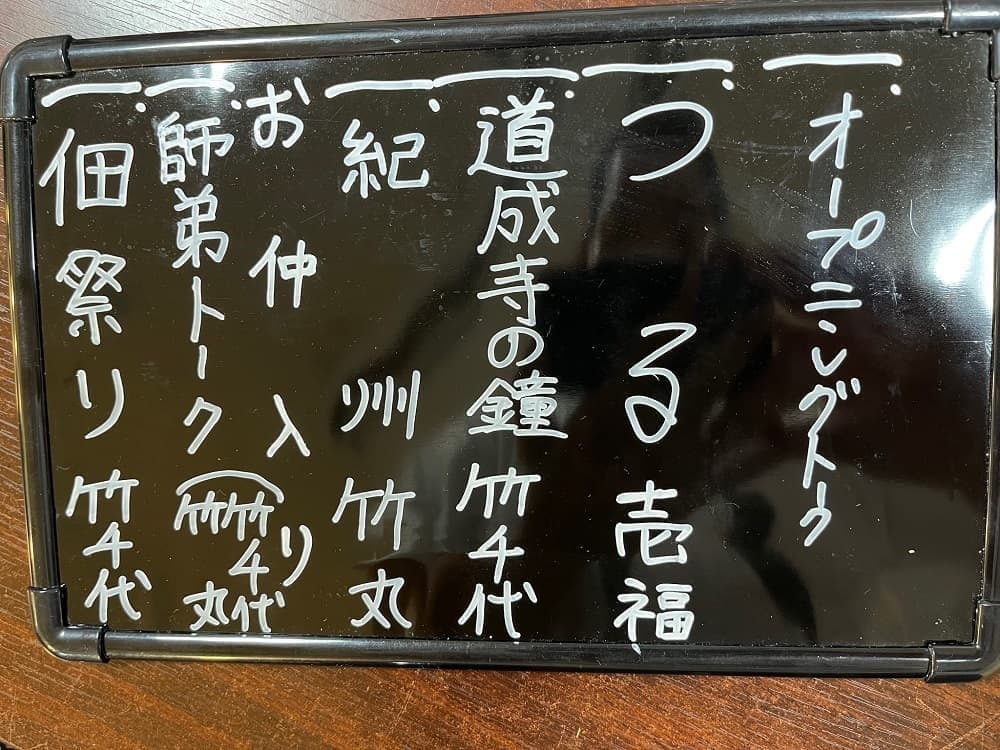 一、オープニングトーク
一、つる 壱福
一、道成寺の鐘 竹千代
一、紀州 竹丸
お仲入り
一、師弟トーク (竹千代 竹丸
一、佃祭り 竹千代